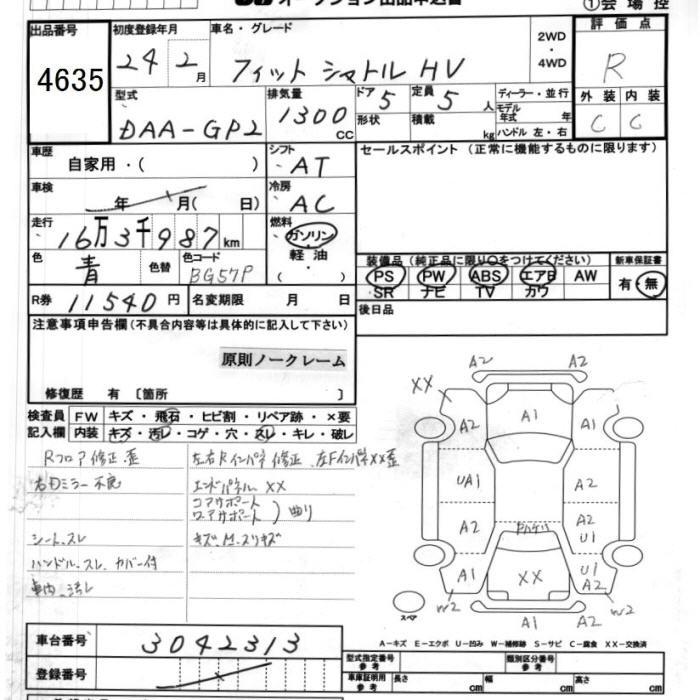 ①会場控
出品番号
4635
初度登録年月
24 2月
車名・グレード
フィットシャトルHV
2WD
・
4WD
評価点
R
型式
DAA-GP2
排気量
1300
CC
ドア
5
定員
5
人
形状
積載
kg
ディーラー・並行
モデル
年式 年
ハンドル 左・右
外装 内装
C C
車歴
自家用・( )
シフト
AT
セールスポイント (正常に機能するものに限ります)
車検
年 月( 日)
冷房
AC
走行
16万3千987km
燃料
ガソリン
軽油
( ・ )
色
青
色替
色コード
BG57P
装備品(純正品に限り○をつけてください)
新車保証書
PS PW ABS エアB AW
SR ナビ TV カワ
有・無
R券
11540円
名変期限 月 日
後日品
注意事項申告欄(不具合内容等は具体的に記入して下さい)
原則ノークレーム
修復歴 有 〔箇所 〕
検査員
記入欄
FW
キズ・飛石・ヒビ割・リペア跡・×要
内装
キズ・汚レ・コゲ・穴・スレ・キレ・破レ
Rフロア修正、歪
左右Rインパネ修正、左FインパネXX歪
右ドミラー不良
エンドパネルXX
コアサポート
ロアサポート
)曲り
シート、スレ
キズ、M、スリキズ
ハンドル、スレ、カバー付
車内、汚レ
A2 A2
XX
A2 A1 A2
UA1 A2
A2 A2
U1
A1 XX U1
A2
w2 A1 A2 w2
スペア
A-キズ E-エクボ U-凹み W-補修跡 S-サビ C-腐食 XX-交換済
車台番号
3042313
登録番号
型式指定番号
参考
類別区分番号
参考
車庫証明用
参考
長さ cm 幅 cm 高さ cm